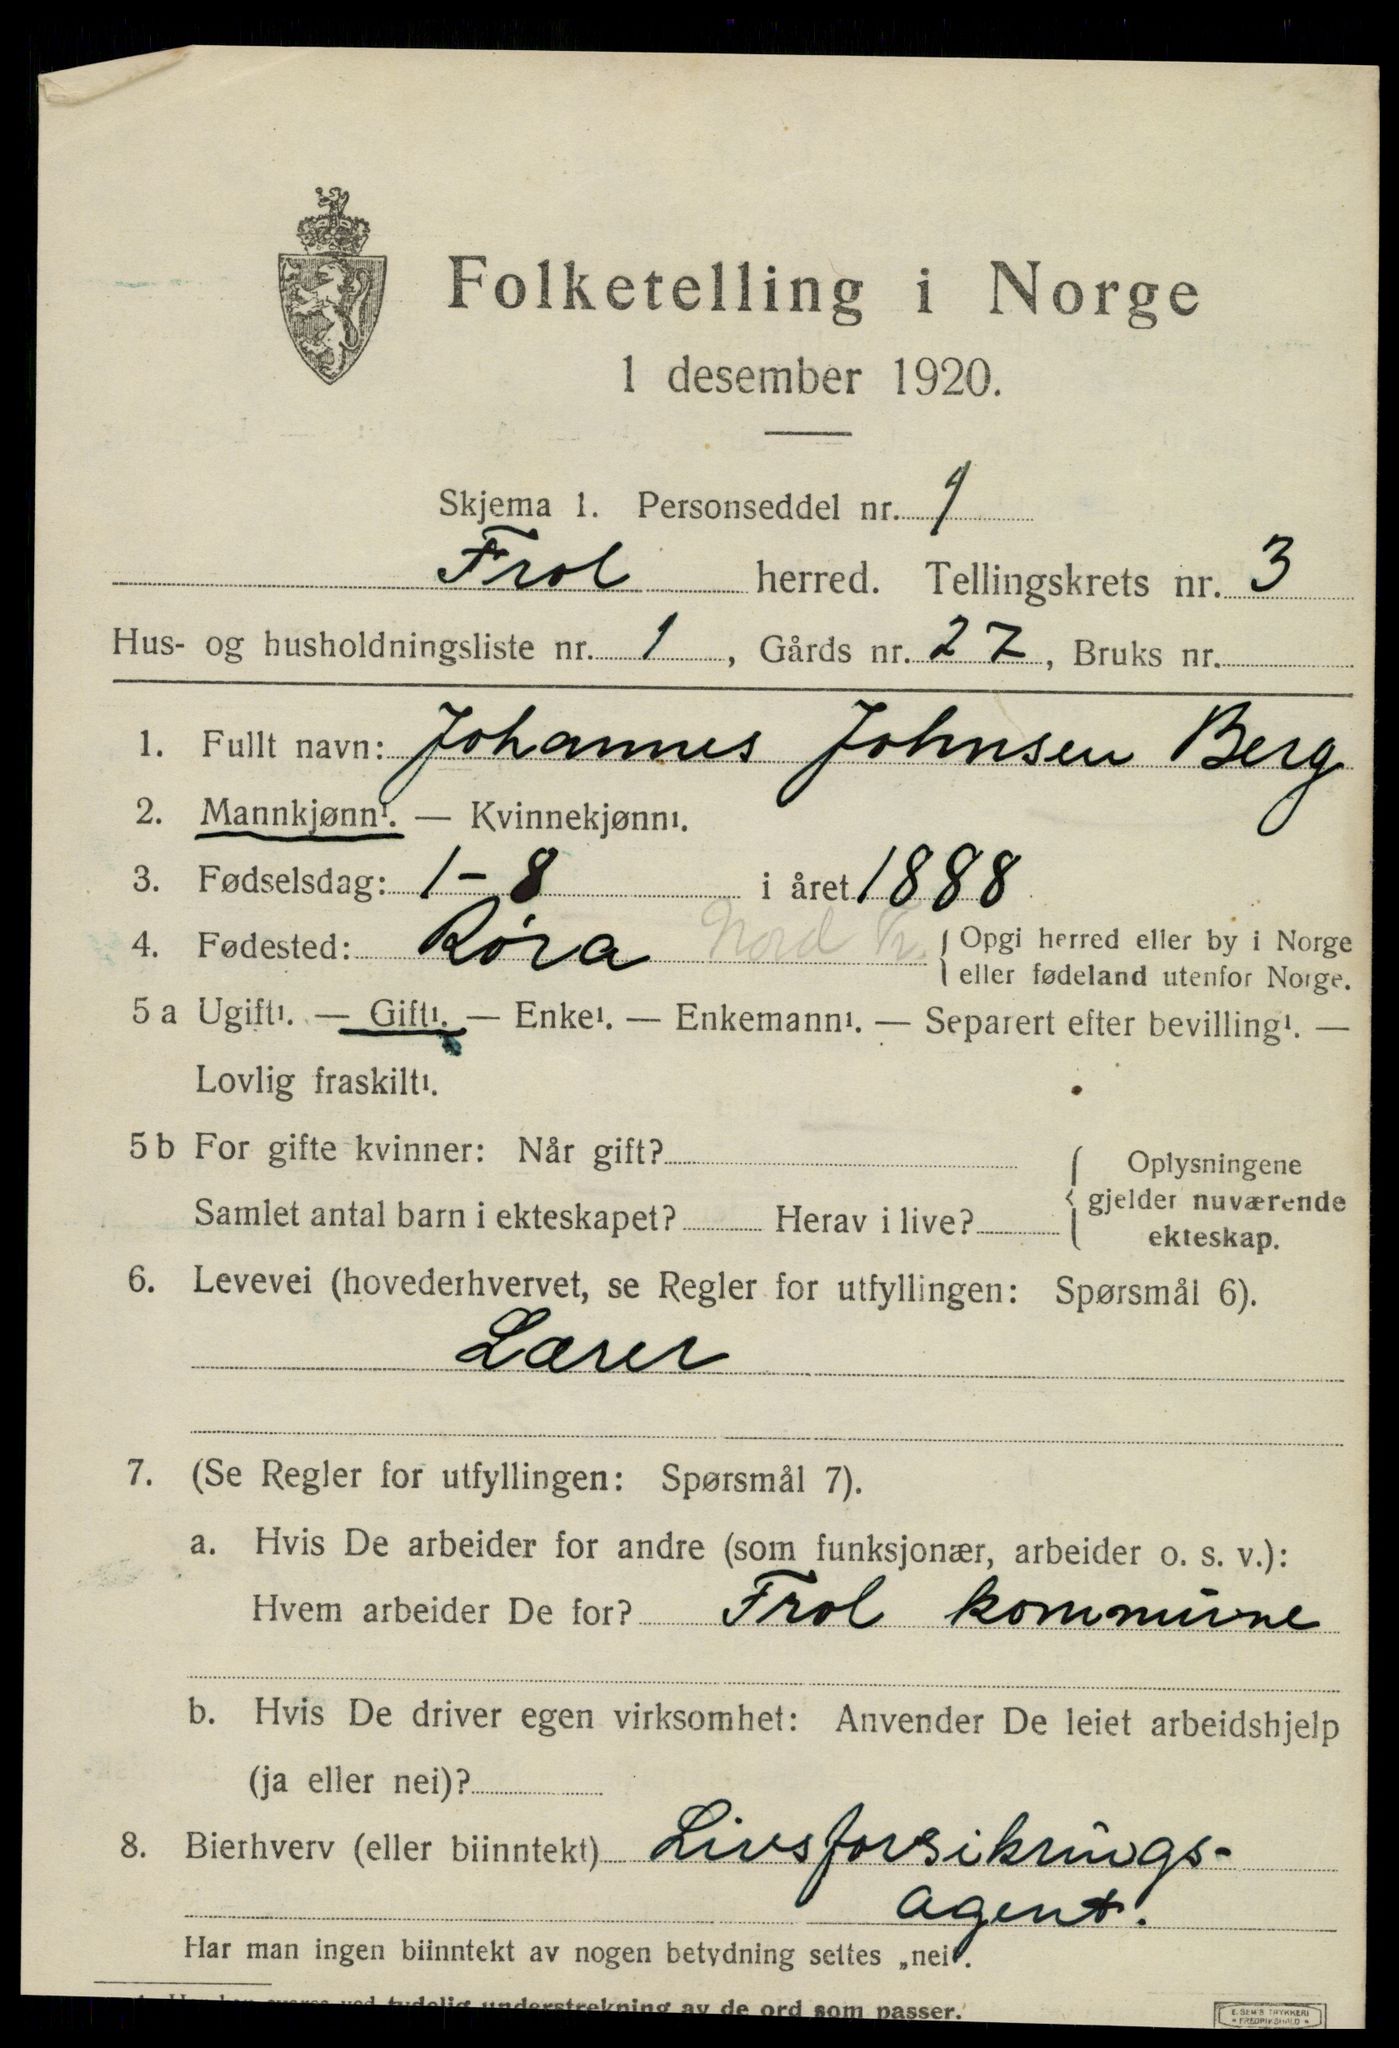 Folketelling i Norge
1 desember 1920.
Skjema 1. Personseddel nr. 1
Frol herred. Tellingskrets nr. 3
Hus- og husholdningsliste nr. 1, Gårds nr. 27, Bruks nr.
1. Fullt navn: Johannes Johnsen Berg
2. Mannkjønn¹. — Kvinnekjønn¹.
3. Fødselsdag: 1-8 i året 1888
4. Fødested: Røra Nord Tr. { Opgi herred eller by i Norge
eller fødeland utenfor Norge.
5 a Ugift¹. — Gift¹. — Enke¹. — Enkemann¹. — Separert efter bevilling¹. —
Lovlig fraskilt¹.
5 b For gifte kvinner: Når gift?
Samlet antal barn i ekteskapet? Herav i live?
{ Oplysningene
gjelder nuværende
ekteskap.
6. Levevei (hovederhvervet, se Regler for utfyllingen: Spørsmål 6).
Lærer
7. (Se Regler for utfyllingen: Spørsmål 7).
a. Hvis De arbeider for andre (som funksjonær, arbeider o. s. v.):
Hvem arbeider De for? Frol kommune
b. Hvis De driver egen virksomhet: Anvender De leiet arbeidshjelp
(ja eller nei)?
8. Bierhverv (eller biinntekt) Livsforsikrings-
agent.
Har man ingen biinntekt av nogen betydning settes „nei".
ved tydelig understrekning av de ord som passer.
E. SEM'S TRYKKERI
FREDRIKSHALD